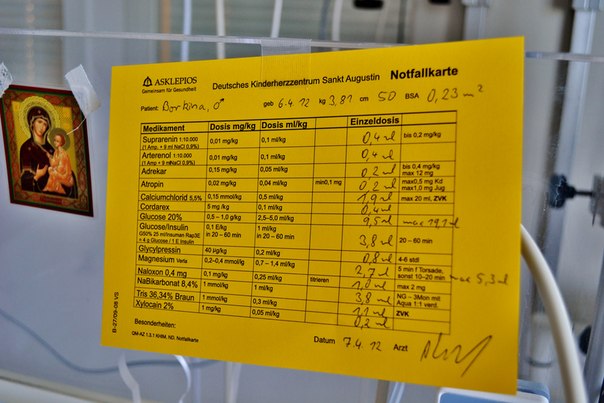 ASKLEPIOS
Gemeinsam für Gesundheit
Deutsches Kinderherzzentrum Sankt Augustin Notfallkarte
Patient: Borbina, ♂ geb 6.4.12 kg 3,81 cm 50 BSA 0,23 m²
Medikament Dosis mg/kg Dosis ml/kg Einzeldosis
Suprarenin 1:10.000 0,01 mg/kg 0,1 ml/kg 0,4 ml bis 0,2 mg/kg
(1 Amp. + 9 ml NaCl 0,9%)
Arterenol 1:10.000 0,01 mg/kg 0,1 ml/kg 0,4 ml
(1 Amp + 9 ml NaCl 0,9%)
Adrekar 0,15 mg/kg 0,05 ml/kg 0,2 ml bis 0,4 mg/kg
max 12 mg
Atropin 0,02 mg/kg 0,04 ml/kg min0,1 mg 0,2 ml max0,5 mg Kd
max1,0 mg Jug
Calciumchlorid 5,5% 0,15 mmol/kg 0,5 ml/kg 1,9 ml max 20 ml, ZVK
Cordarex 5 mg/kg 0,1 ml/kg 0,4 ml
Glucose 20% 0,5 – 1,0 g/kg 2,5-5,0 ml/kg 9,5 ml max 19,1 ml
Glucose/Insulin 0,1 E/kg 1 ml/kg 3,8 ml 20 – 60 min
G50% 25 ml/Insuman Rap3E in 20 – 60 min in 20 – 60 min
+ 4 g Glucose / 1 E Insulin
Glycylpressin 40 µg/kg 0,2 ml/kg 0,8 ml 4-6 stdl
Magnesium Verla 0,2–0,4 mmol/kg 0,7 – 1,4 ml/kg 2,7 ml 5 min f Torsade, max 5,3 ml
sonst 10–20 min
Naloxon 0,4 mg 0,1 mg/kg 0,25 ml/kg titrieren 1,0 ml max 2 mg
NaBikarbonat 8,4% 1 mmol/kg 1 ml/kg 3,8 ml NG – 3Mon mit
Aqua 1:1 verd.
Tris 36,34% Braun 1 mmol/kg 0,3 ml/kg 1,1 ml ZVK
Xylocain 2% 1 mg/kg 0,05 ml/kg 0,2 ml
Besonderheiten:
Datum 7.4.12 Arzt